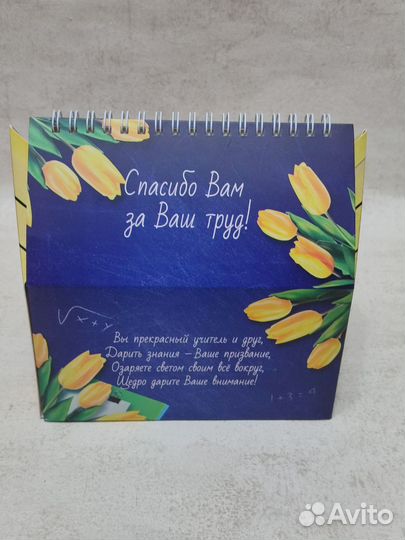 Спасибо Вам
за Ваш труд!
√x+y
Вы прекрасный учитель и друг,
Дарить знания – Ваше призвание,
Озаряете светом своим всё вокруг,
Щедро дарите Ваше внимание!
1+3=4
Avito